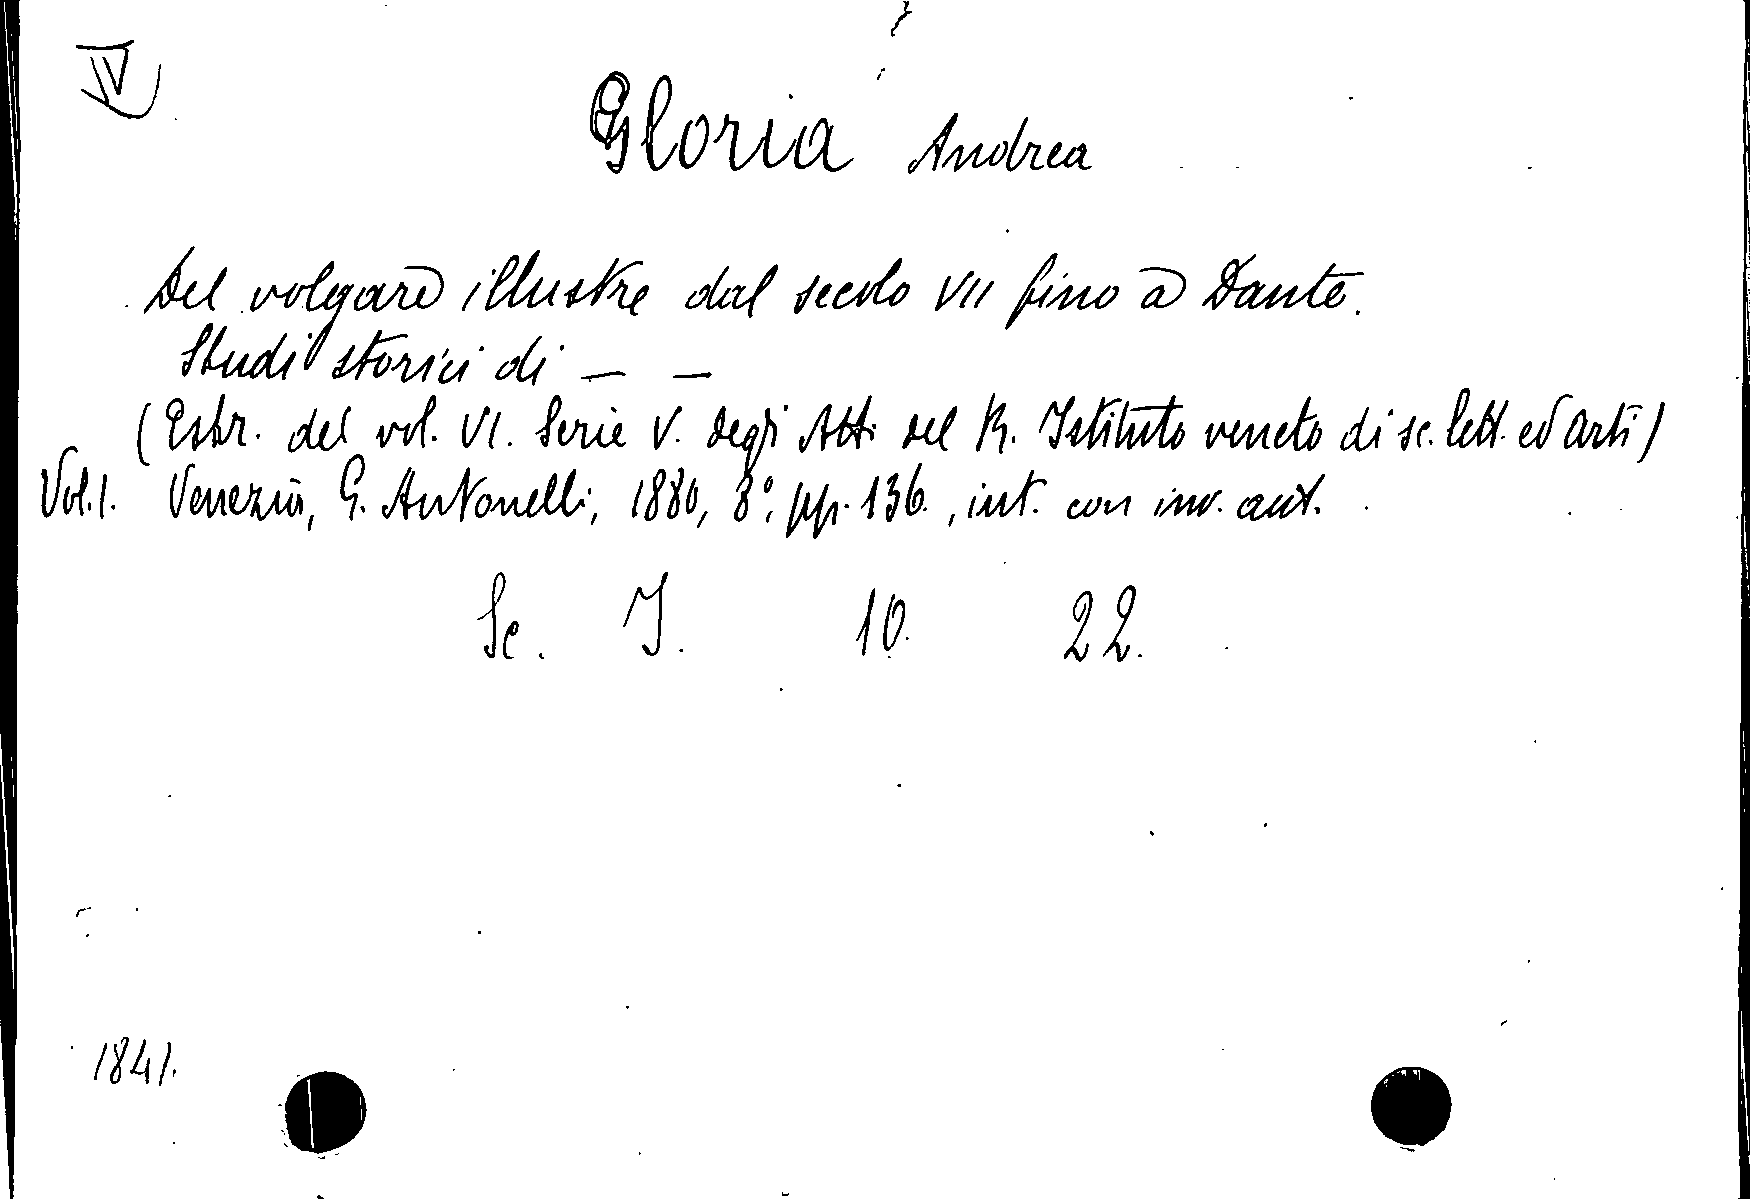 IV
Gloria Andrea
Del volgare illustre dal secolo VII fino a Dante.
Studi storici di — —
(Estr. del vol. VI. Serie V. degli Atti del R. Istituto veneto di sc. lett. ed arti)
Vol. 1. Venezia, G. Antonelli, 1880, 8°, pp. 136., int. con inv. aut.
Sc. I. 10. 22.
1841.